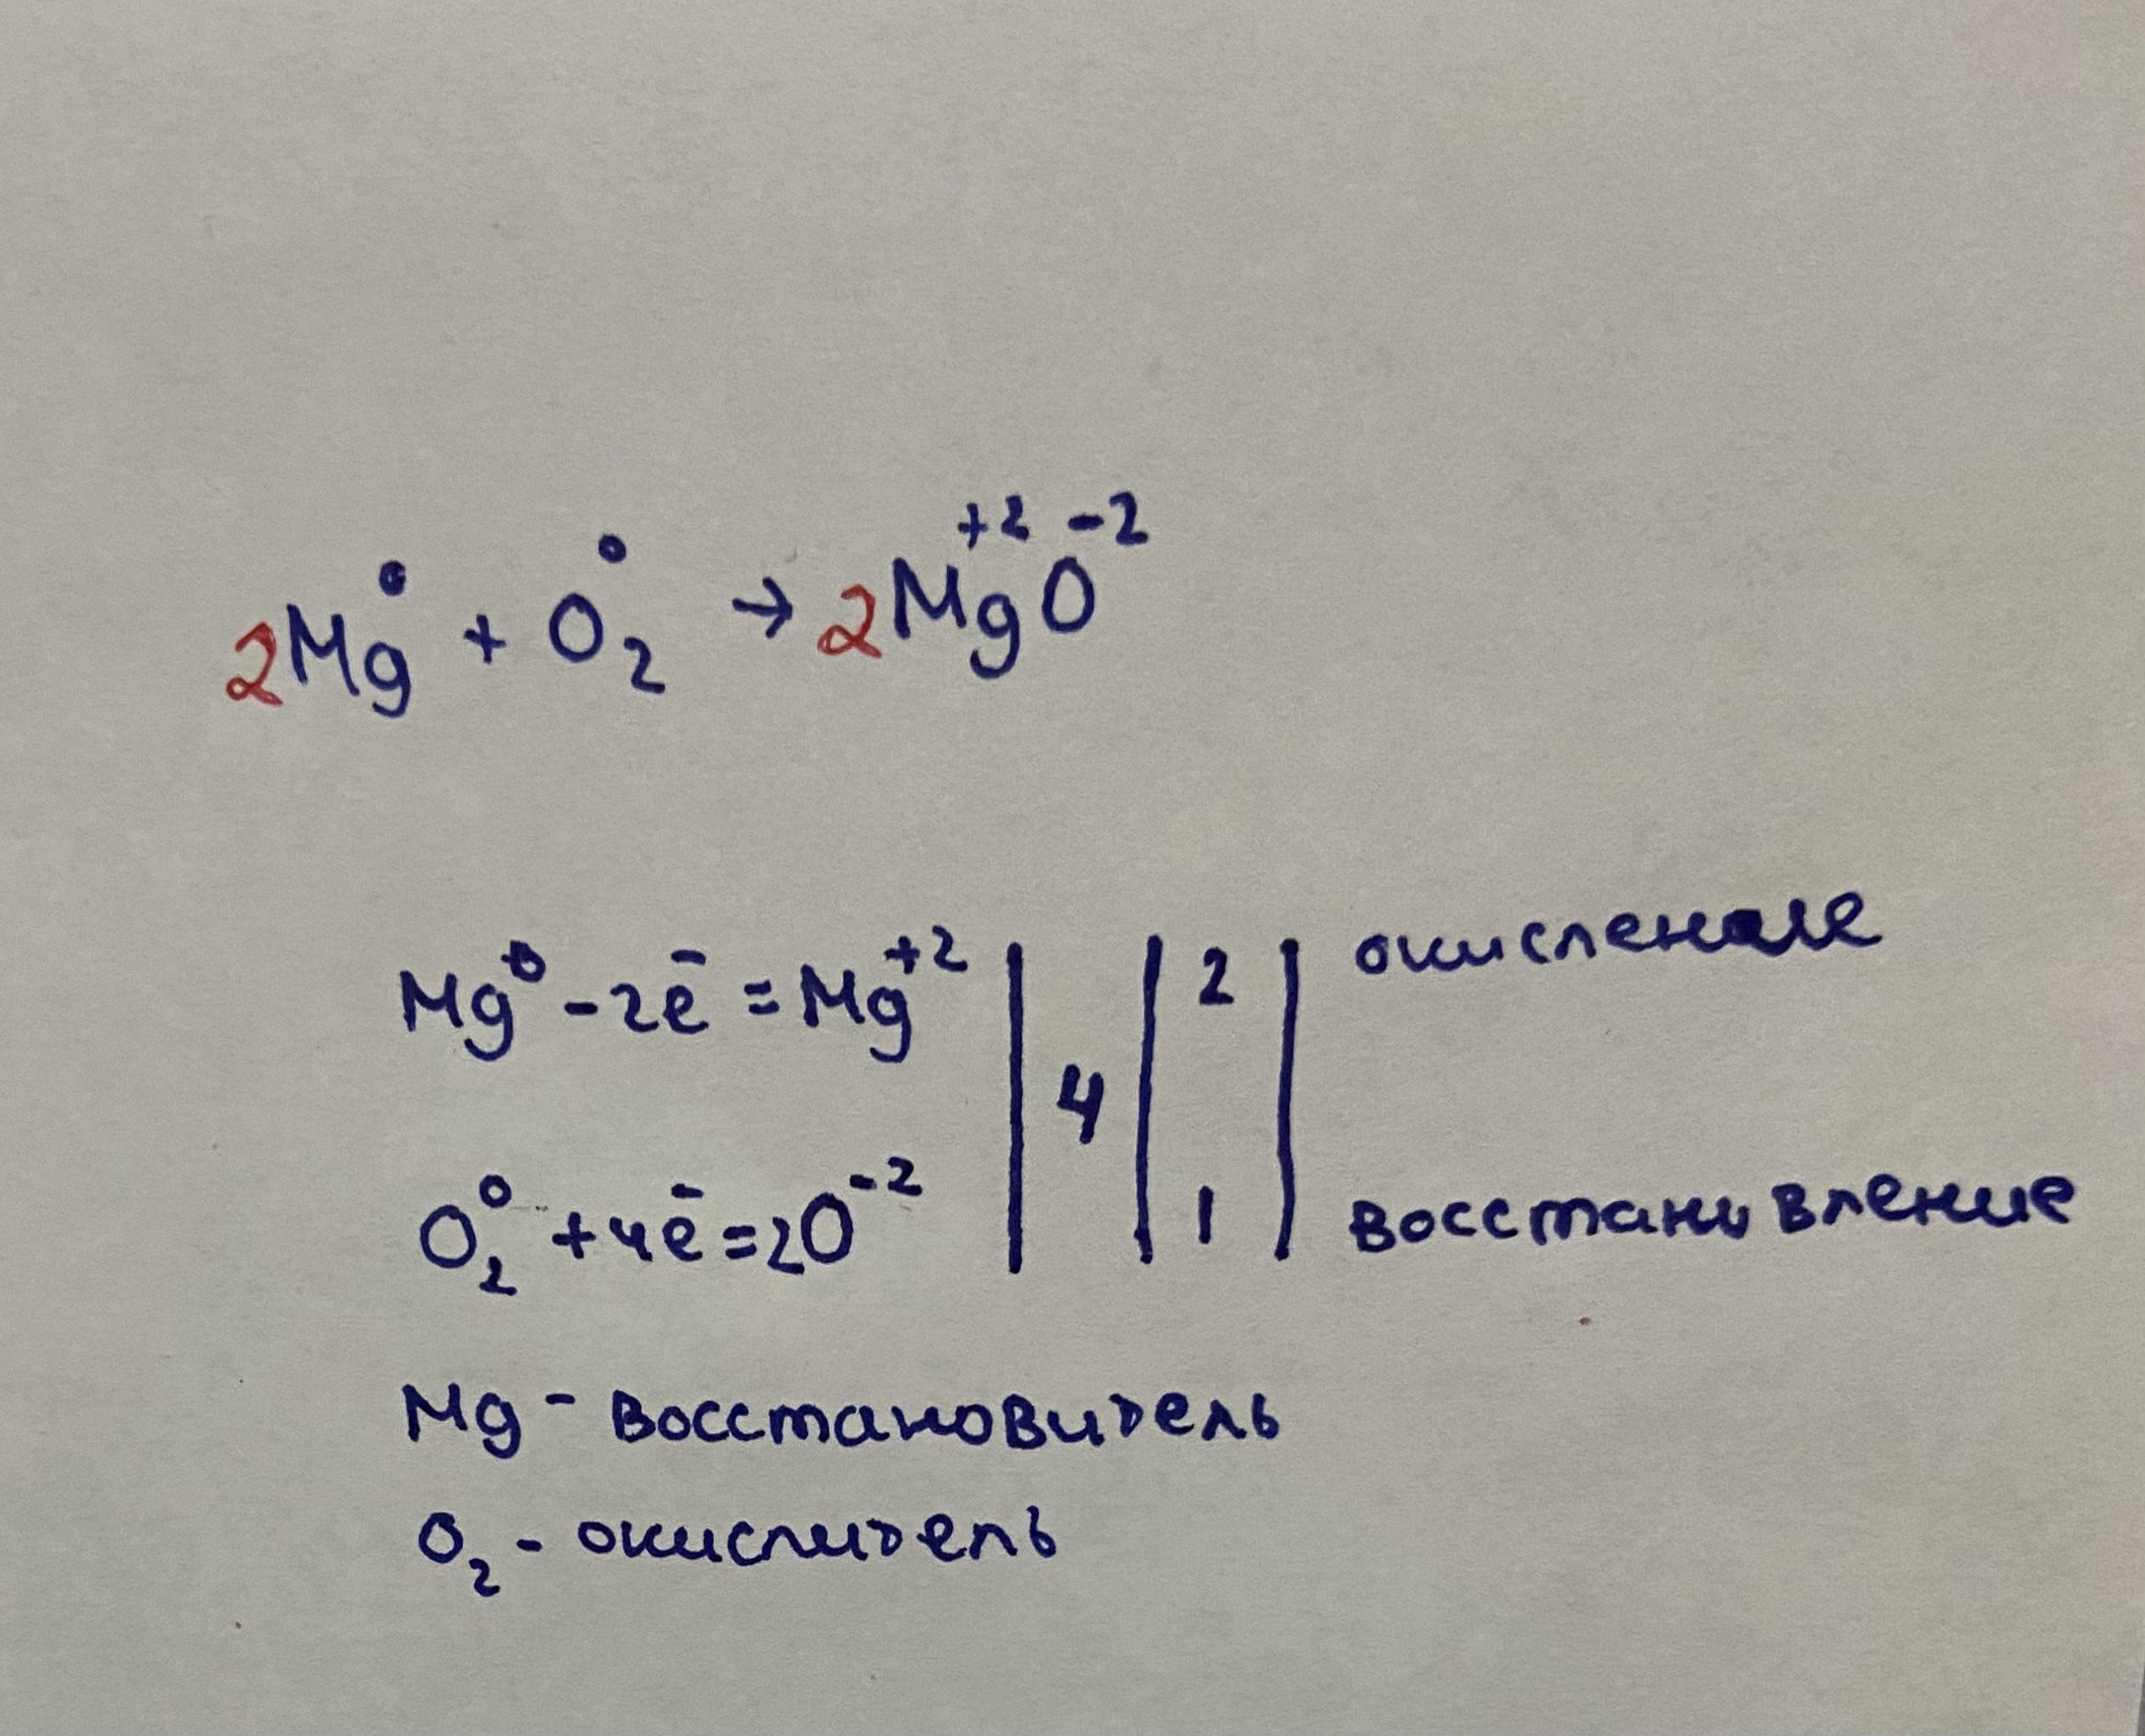 2Mg⁰ + O₂⁰ → 2Mg⁺²O⁻²
Mg⁰ - 2ē = Mg⁺² | 4 | 2 | окисление
O₂⁰ + 4ē = 2O⁻² | 1 | восстановление
Mg - восстановитель
O₂ - окислитель